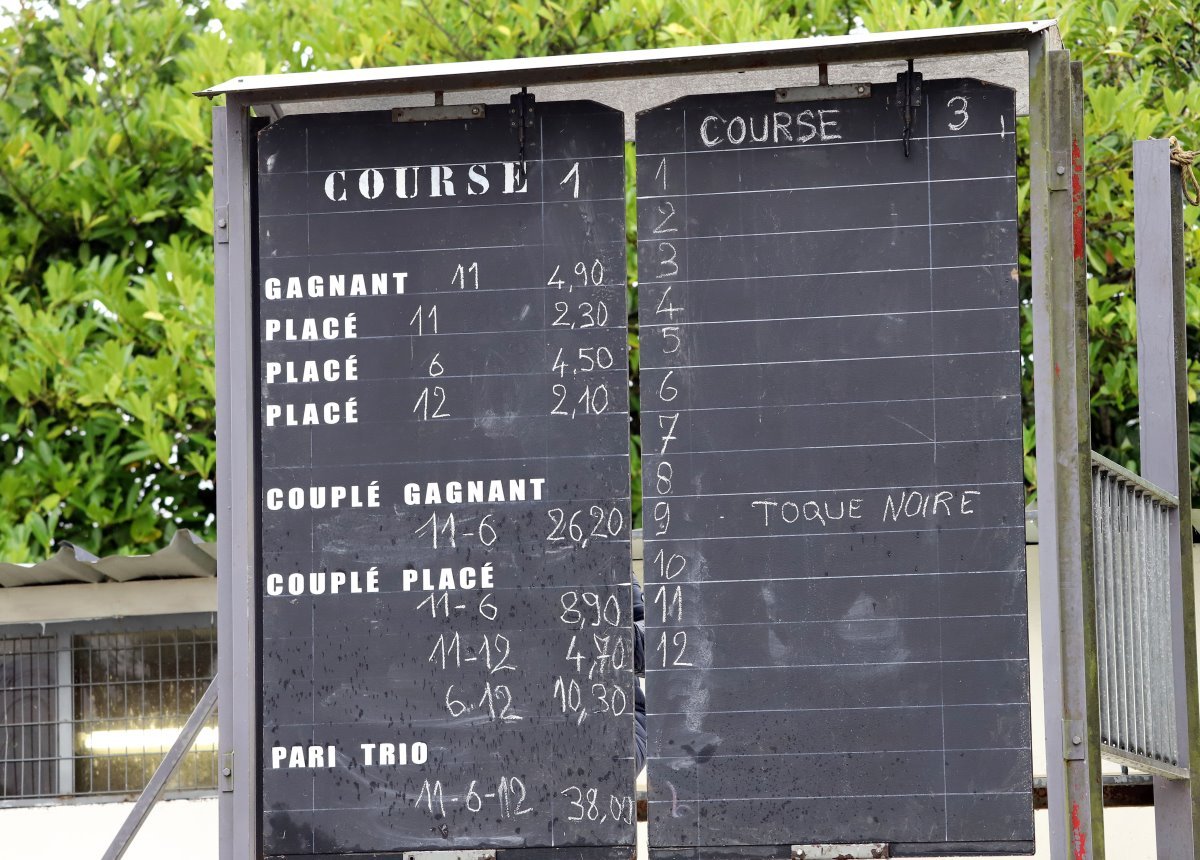 COURSE 1
GAGNANT 11 4,90
PLACÉ 11 2,30
PLACÉ 6 4.50
PLACÉ 12 2,10
COUPLÉ GAGNANT
11-6 26,20
COUPLÉ PLACÉ
11-6 8,90
11-12 4,70
6-12 10,30
PARI TRIO
11-6-12 38,00
COURSE 3
1
2
3
4
5
6
7
8
9 TOQUE NOIRE
10
11
12